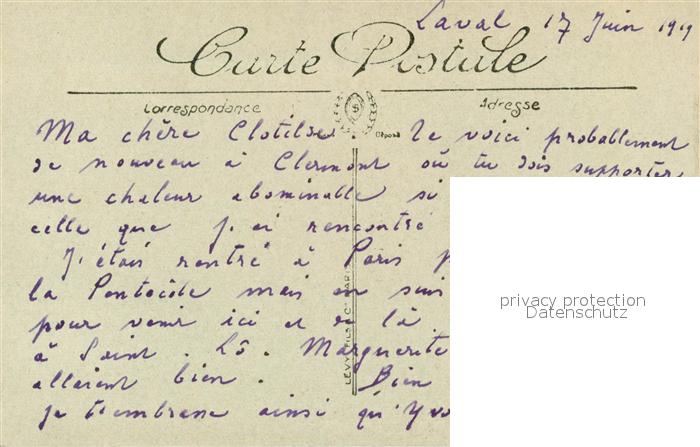 Laval 17 Juin 1919
Carte Postale
Correspondance
Adresse
Déposé
Ma chère Clotilde Te voici probablement
de nouveau à Clermont où tu dois supporter
une chaleur abominable si
celle que j'ai rencontré
J'étais rentré à Paris
la Pentecôte mais en suis
pour venir ici et de là
à Saint-Lô. Marguerite
allaient bien. Bien
je t'embrasse ainsi qu'Yvo
LEVY FILS & Cie PARIS
privacy protection
Datenschutz